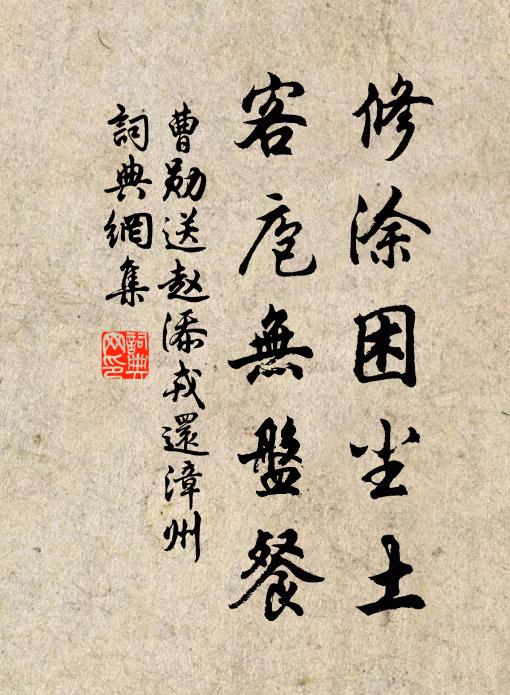 修涂困尘土
客庖無盤餐
曹勋送赵添戎還漳州
詞典網集
詞典网印